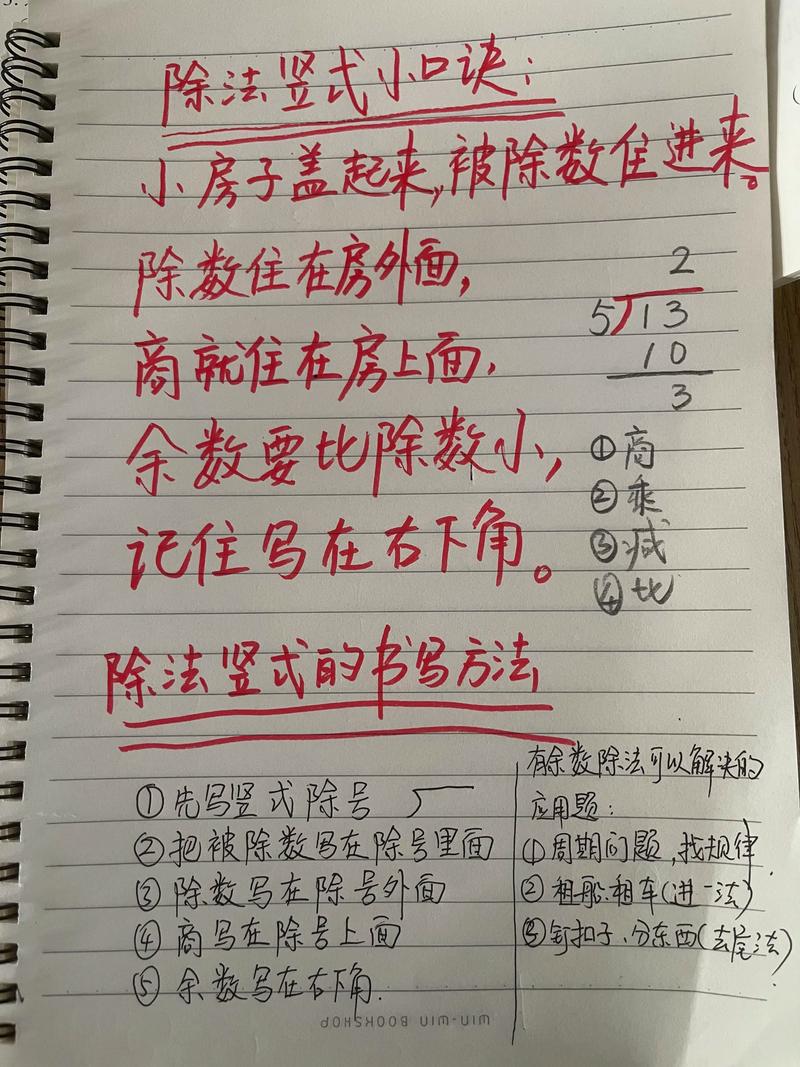 除法竖式小口诀：
小房子盖起来，被除数住进来。
除数住在房外面，
商就住在房上面，
余数要比除数小，
记住写在右下角。
2
5 13
10
3
①商
②乘
③减
④比
除法竖式的书写方法
①先写竖式除号
②把被除数写在除号里面
③除数写在除号外面
④商写在除号上面
⑤余数写在右下角.
有余数除法可以解决的
应用题：
①周期问题，找规律
②租船.租车(进一法)
③钉扣子、分东西(去尾法)
WIN-WIN BOOKSHOP